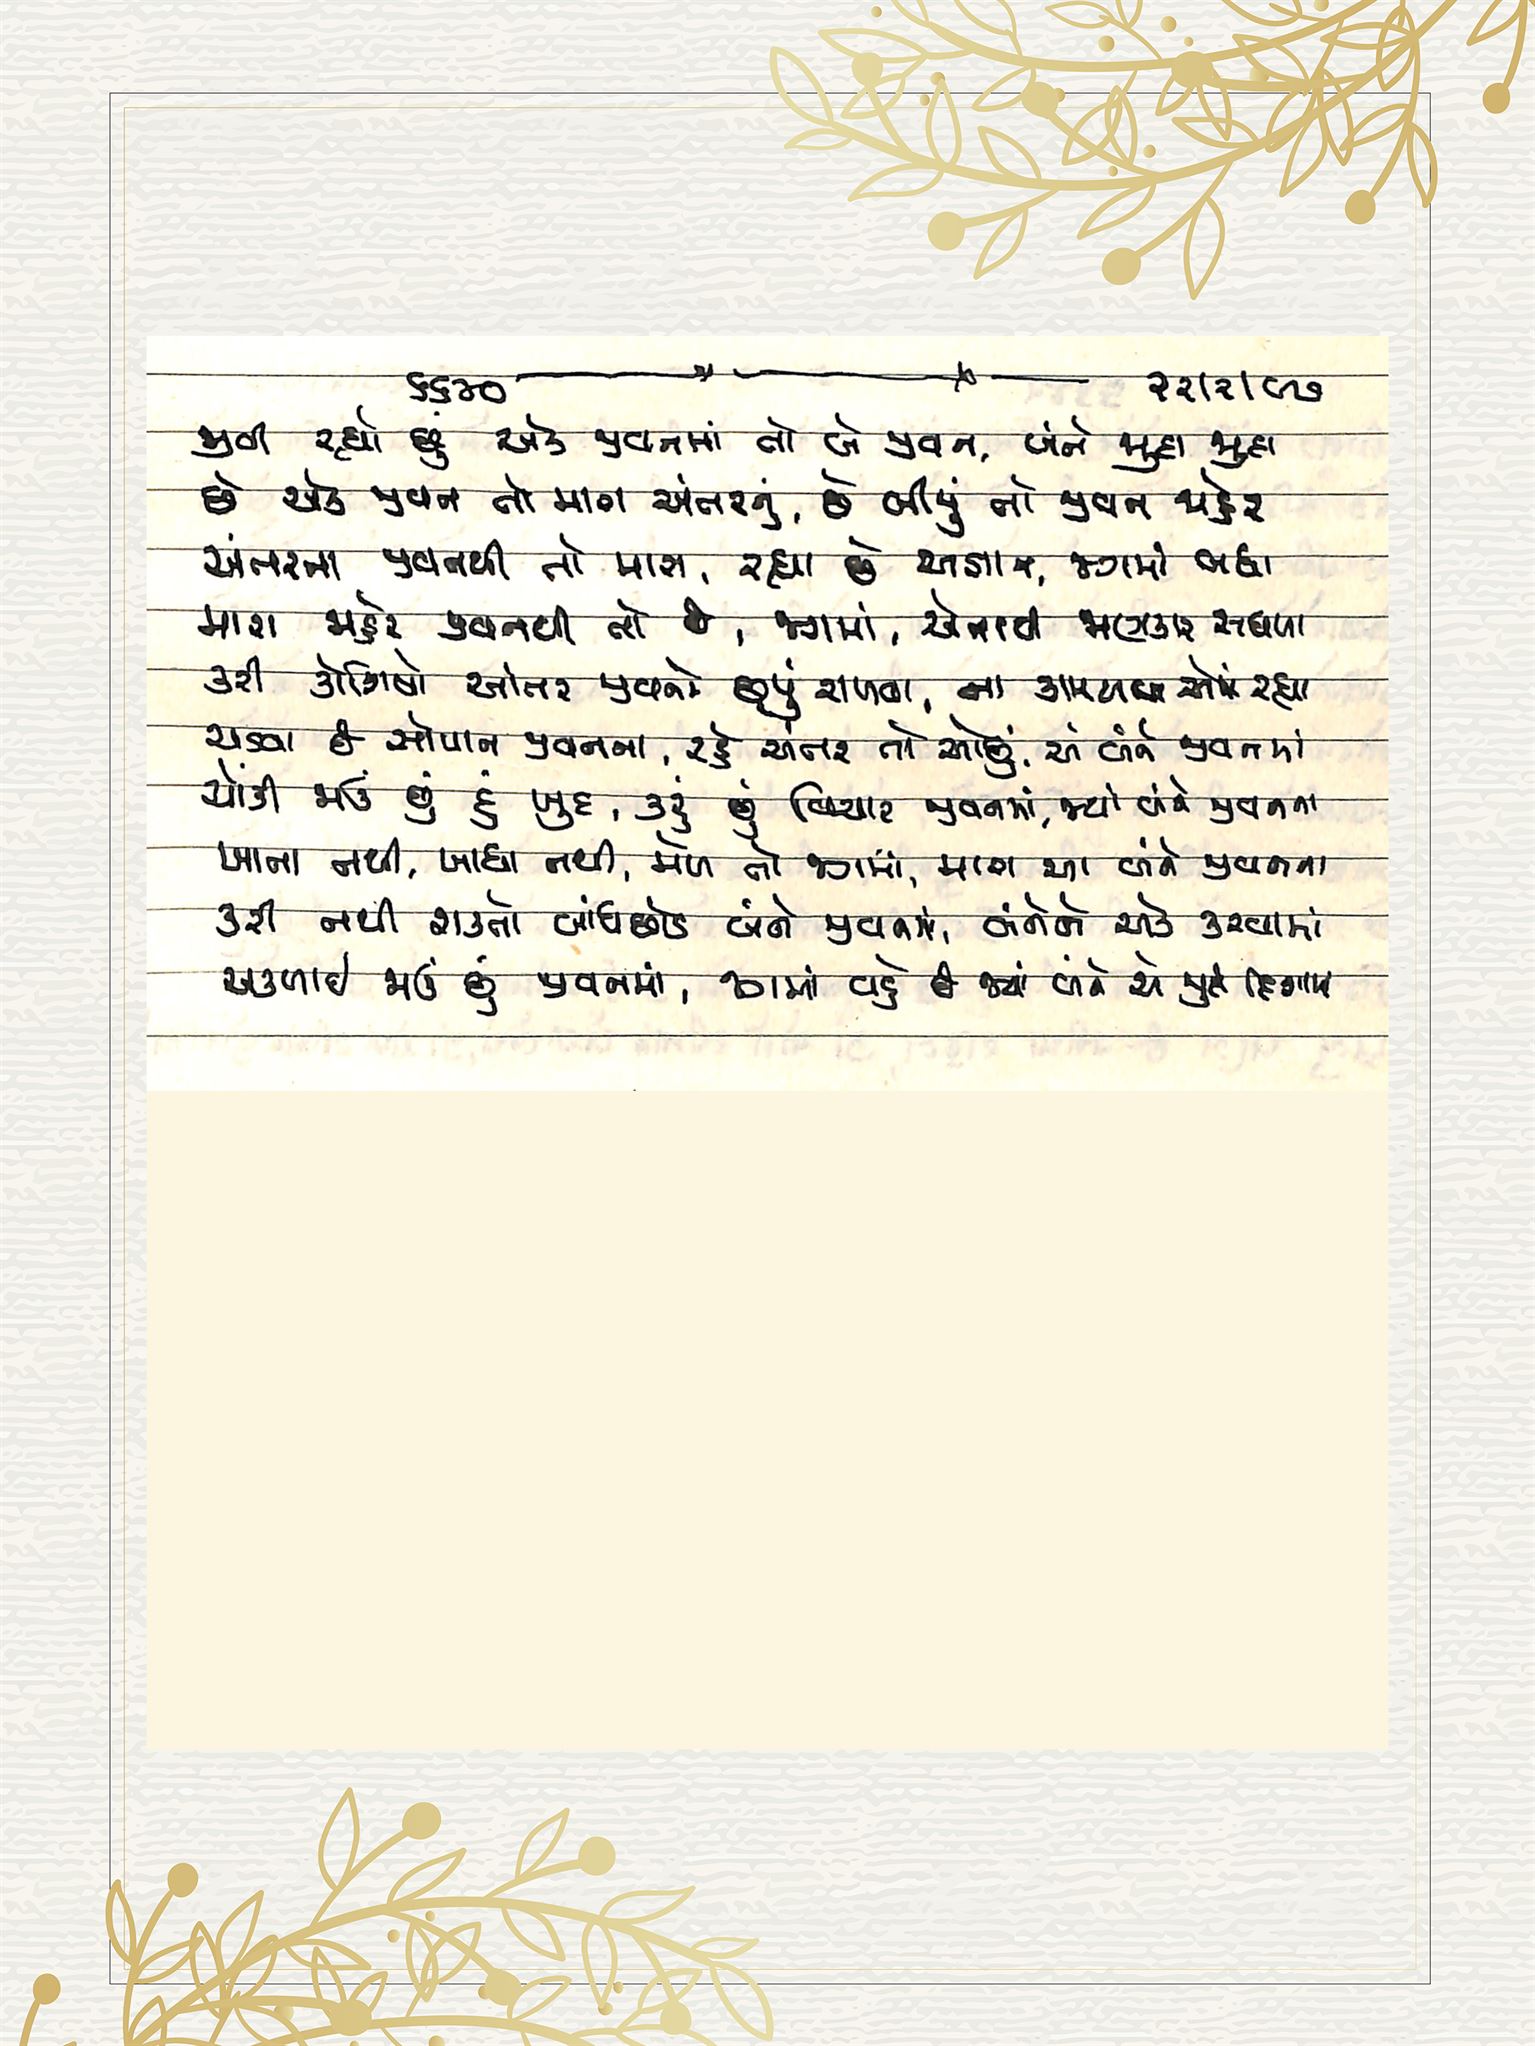 ૬૬૩૦ ૨૨/૨/૯૭
જીવી રહ્યો છું એક જીવનમાં તો બે જીવન, બંને જુદા જુદા
છે એક જીવન તો મારા અંતરનું, છે બીજું તો જીવન જાહેર
અંતરના જીવનથી તો મારા, રહ્યા છે અજાણ, જગમાં બધા
મારા જાહેર જીવનથી તો છે, જગમાં, એના જાણકાર સઘળા
કરી કોશિષો અંતર જીવનને છૂપું રાખવા, ના કામયાબ એમાં રહ્યા
ચડવા છે સોપાન જીવનના, રહે અંતર તો ઓછું, એ બંને જીવનમાં
ચોંકી જાઉં છું હું ખુદ, કરું છું વિચાર જીવનમાં, જ્યાં બંને જીવનના
ખાતા નથી, ખાધા નથી, મેળ તો જગમાં, મારા આ બંને જીવનના
કરી નથી શક્તો બાંધછોડ બંને જીવનમાં, બંનેને એક કરવામાં
અકળાઈ જાઉં છું જીવનમાં, જગમાં વહે છે જ્યાં બંને એ જુદી દિશામાં